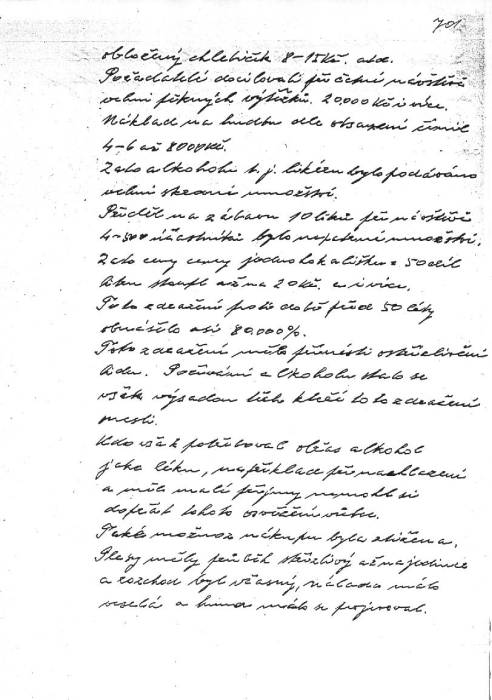 701.
obložený chlebíček 8-15Kč. atd.
Pořadatelé docilovali při četné návštěvě
velmi pěkných výtěžků. 20,000 Kč i více.
Náklad na hudbu dle obsazení činil
4-6 až 8000Kč.
Zato alkoholu t.j. likéru bylo podáváno
velmi skromné množství.
Příděl na zábavu 10 litrů při návštěvě
4-500 účastníků bylo nepatrné množství.
Zato ceny jednoho kalíšku = 50 díl
litru stoupl až na 20Kč. a i více.
Toto zdražení proti době před 50 léty
obnášelo asi 80,000%.
Toto zdražení mělo přinésti
lidu. Požívání alkoholu stalo se
však výsadou těch kteří toto zdražení
snesli.
Kdo však potřeboval občas alkohol
jako léku, například při nachlazení
a měl malé příjmy nemohl si
dopřát tohoto osvěžení vůbec.
Také možnost nákupu byla ztížena.
Plesy měly průběh střízlivý až na jedince
a rozchod byl včasný, nálada málo
veselá a humor málo se projevoval.